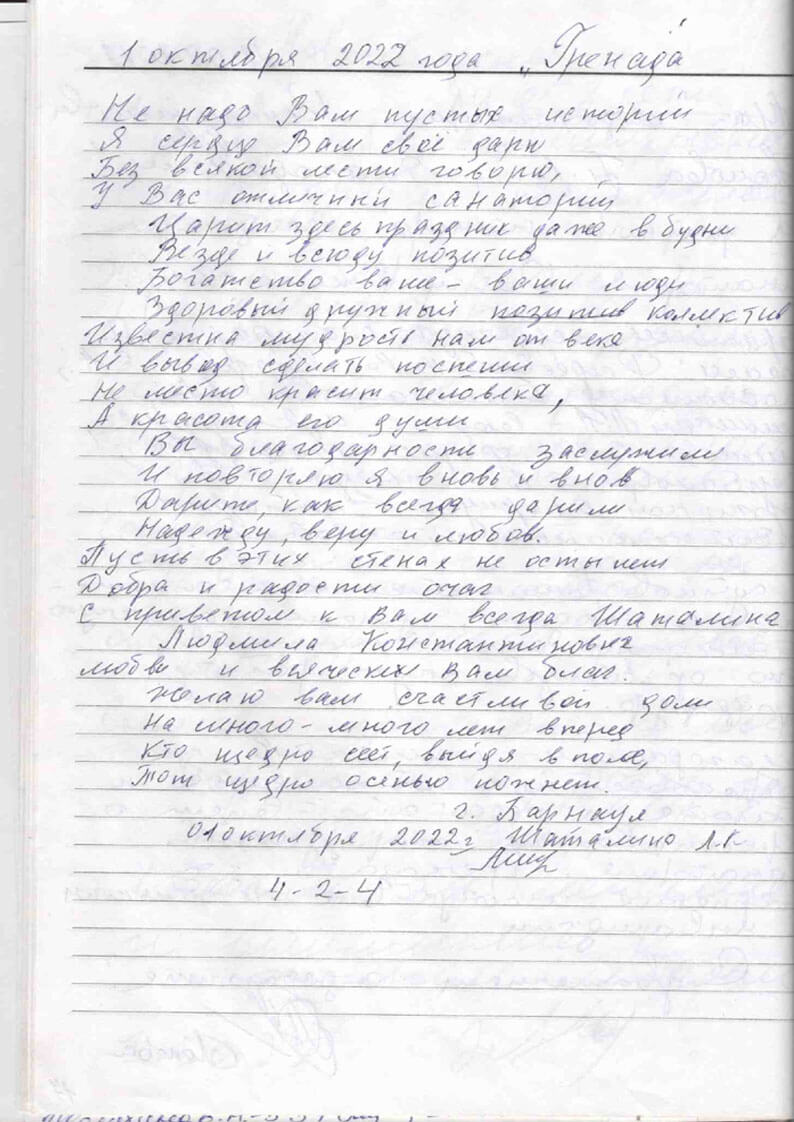 1 октября 2022 года „Гренада
Не надо Вам пустых историй
Я сердце Вам своё дарю
Без всякой лести говорю,
У Вас отличный санаторий
Царит здесь праздник даже в будни
Везде и всюду позитив
Богатство ваше - ваши люди
Здоровый дружный позитив коллектив
Известна мудрость нам от века
И вывод сделать поспеши
Не место красит человека,
А красота его души
Вы благодарность заслужили
И повторяю я вновь и внов
Дарите, как всегда дарили
Надежду, веру и любов.
Пусть в этих стенах не остынет
Добра и радости очаг
С приветом к Вам всегда Шаталина
Людмила Константиновна
любви и всяческих Вам благ.
Желаю вам счастливой доли
На много-много лет вперед
Кто щедро сеет, выйдя в поле,
Тот щедро осенью пожнет.
г. Барнаул
01 октября 2022 г Шаталина Л.К.
4-2-4